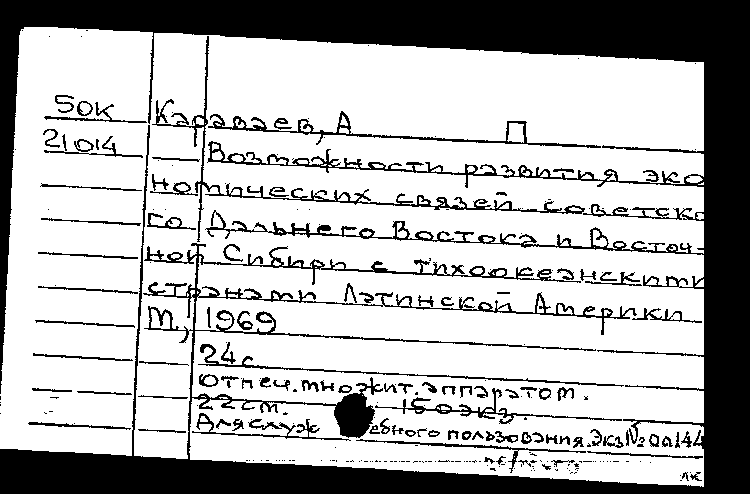 50к Караваев, А П
21014 Возможности развития эко
номических связей советско
го Дальнего Востока и Восточ-
ной Сибири с тихоокеанскими
странами Латинской Америки
М., 1969
24с
отпеч. множит. аппаратом.
22см. 150экз.
Для служебного пользования. Экз № 00144
лк